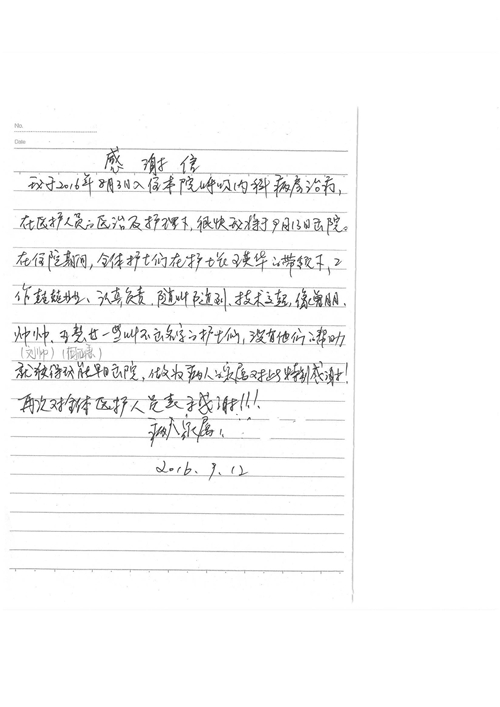 No.
Date
感谢信
我于2016年8月3日入住本院呼吸内科病房治疗,
在医护人员的医治及护理下,很快我将于9月13日出院。
在住院期间,全体护士们在护士长王英华的带领下,工
作兢兢业业、认真负责,随叫随到,技术过硬,像曾朋、
帅帅、
还有一些叫不出名字的护士们,没有他们的帮助
(刘帅)
就很难能早日出院,做为病人的家属对此特别感谢!
再次对全体医护人员表示感谢!!!
病人家属:
2016.9.12